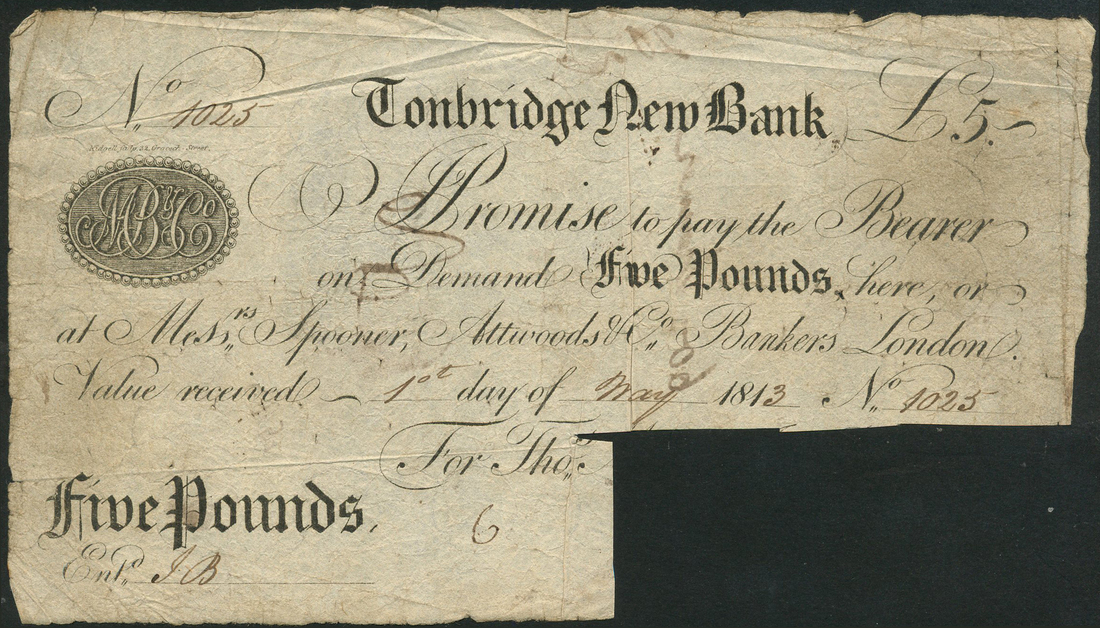 No. 1025
Tonbridge New Bank £5.-
I Promise to pay the Bearer
on Demand Five Pounds, here, or
at Messrs. Spooner, Attwoods & Co. Bankers London.
Value received 1st day of May 1813 No. 1025
For Thos.
Five Pounds.
6
Entd. J B